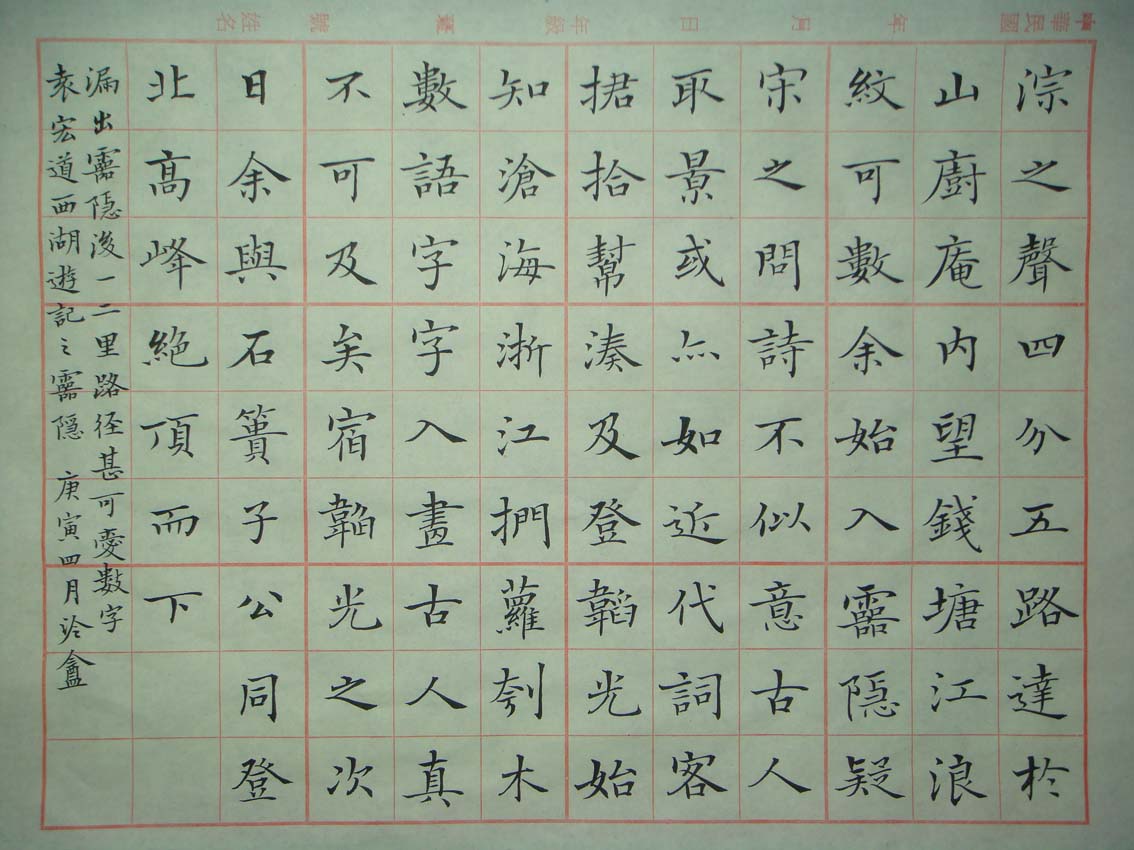 中華民國 年 月 日 年級 號 姓名
淙之聲四分五路達於
山廚庵内望錢塘江浪
紋可數余始入靈隱疑
宋之問詩不似意古人
取景或亦如近代詞客
捃拾幫湊及登韜光始
知滄海浙江捫蘿刳木
數語字字入畫古人真
不可及矣宿韜光之次
日余與石簣子公同登
北高峰絕頂而下
漏出靈隱後一二里路徑甚可愛數字
袁宏道西湖遊記之靈隱 庚寅四月盦